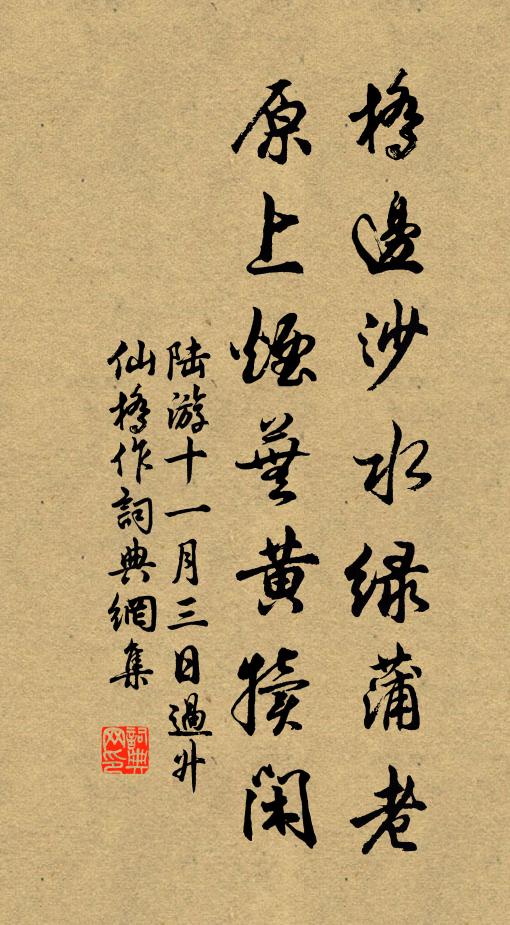 橋邊沙水綠蒲老
原上煙蕪黃犢閑
陸游十一月三日過升
仙橋作詞典網集
詞典網印